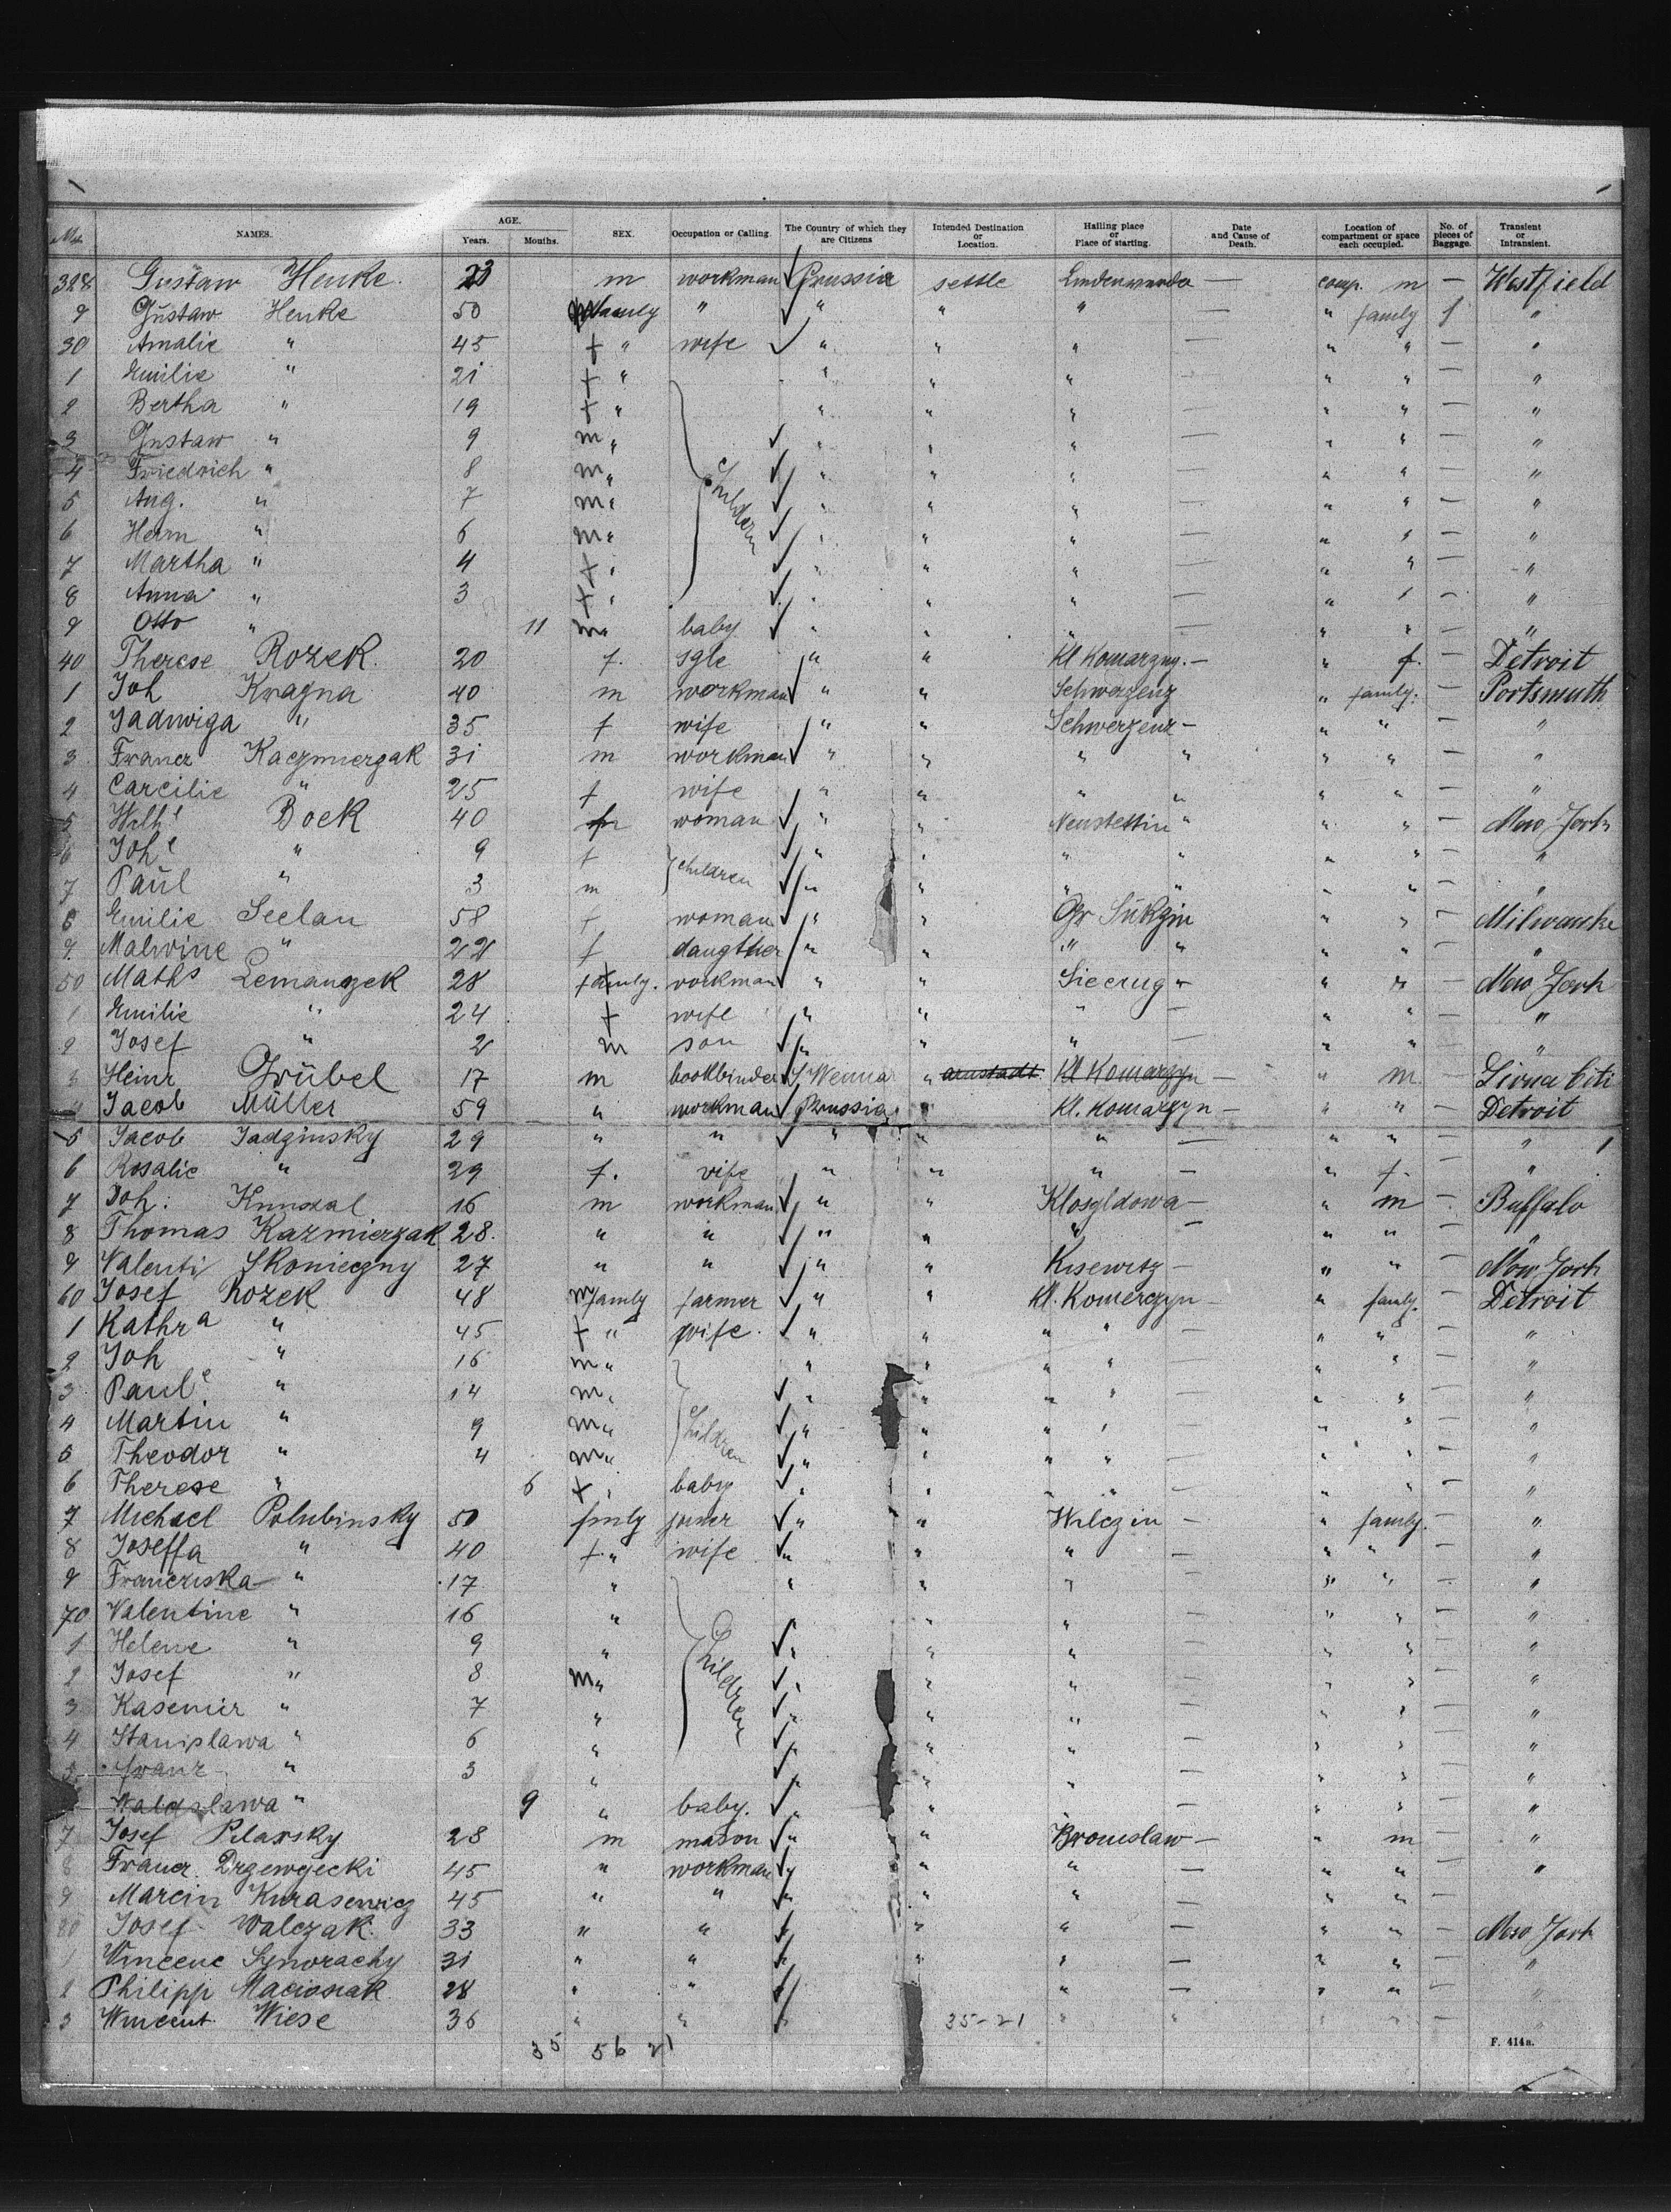 No. NAMES. AGE. Years. Months. SEX. Occupation or Calling. The Country of which they are Citizens Intended Destination or Location. Hailing place or Place of starting. Date and Cause of Death. Location of compartment or space each occupied. No. of pieces of Baggage. Transient or Intransient.
328 Gustaw Henke. 23 m workman Prussia settle — comp. m — Westfield
9 Gustaw Henke 50 family " " " " — " family 1 "
30 Amalie " 45 f " wife " " " — " " — "
1 Emilie " 21 f " " " " — " " — "
2 Bertha " 19 f " " " " — " " — "
3 Gustaw " 9 m " " " " — " " — "
4 Friedrich " 8 m " Children " " " — " " — "
5 Aug. " 7 m " " " " — " " — "
6 Herm " 6 m " " " " — " " — "
7 Martha " 4 f " " " " — " " — "
8 Anna " 3 f " " " " — " " — "
9 Otto " 11 m " baby " " " — " " — "
40 Therese Rozek. 20 f. sgle " " Kl Komarzny. — " f. — Detroit
1 Joh Kragna 40 m workman " " Schwerzenz " family. — Portsmuth
2 Jadwiga " 35 f wife " " Schwerzenz — " " — "
3 Francz Kaczmierzak 31 m workman " " " " " " — "
4 Carcilie " 25 f wife " " " " " " — "
5 Wilhe Bock 40 f woman " " Neustettin " " " — New York
6 Johe " 9 f children " " " " " " — "
7 Paul " 3 m " " " " " " — "
8 Emilie Seelau 58 f woman " " Gr " " — Milwauke
9 Malwine " 22 f daugther " " " " " " — "
50 Maths Lemanzek 28 family. workman " " " " " — New York
1 Emilie " 24 f wife " " " — " " — "
2 Josef " 2 m son " " " — " " — "
3 Heinr Grübel 17 m bookbinder " arnstadt Kl Komarzyn — " m. —
4 Jacob Müller 59 " workman Prussia " Kl. Komarzyn — " " — Detroit
5 Jacob Jadzinsky 29 " " " " " — " " — " 1
6 Rosalie " 29 f. wife " " " — " f. — "
7 Joh. 16 m workman " " Klosyldowa — " m — Buffalo
8 Thomas Kazmierzak 28. " " " " " — " " — "
9 Valenti Skonieczny 27 " " " " Kisewitz — " " — New York
60 Josef Rozek 48 m family farmer " " Kl. Komerczyn — " family. — Detroit
1 Kathra " 45 f " wife. " " " " — " " — "
2 Joh " 16 m " " " " " — " " — "
3 Paule " 14 m " " " " " — " " — "
4 Martin " 9 m " Children " " " " — " " — "
5 Theodor " 4 m " " " " " — " " — "
6 Therese " 6 f " baby " " " " — " " — "
7 Michael Polubinsky 50 fmly joiner " " Wilczin — " family. — "
8 Joseffa " 40 f. " wife " " " — " " — "
9 Franciska " 17 " " " " — " " — "
70 Valentine " 16 " " " " — " " — "
1 Helene " 9 " " " " — " " — "
2 Josef " 8 m " Children " " " — " " — "
3 Kasemir " 7 " " " " — " " — "
4 Stanislawa " 6 " " " " — " " — "
5 Franz " 3 " " " " — " " — "
Waldslawa " 9 " baby. " " " — " " — "
7 Josef Pilarsky 28 m mason " " Bromslaw — " m — "
8 Francz. Drzewyecki 45 " workman " " " — " " — "
9 Marcin Kurasewicz 45 " " " " " — " " —
80 Josef Walczak 33 " " " " " — " " — New York
1 Wincenc Synorachy 31 " " " " " — " " — "
2 Philipp Maciosiak 28 " " " " — " " — "
3 Wincent Wiese 36 " " " 35-21 " " " " — "
35 56 21
F. 414a.